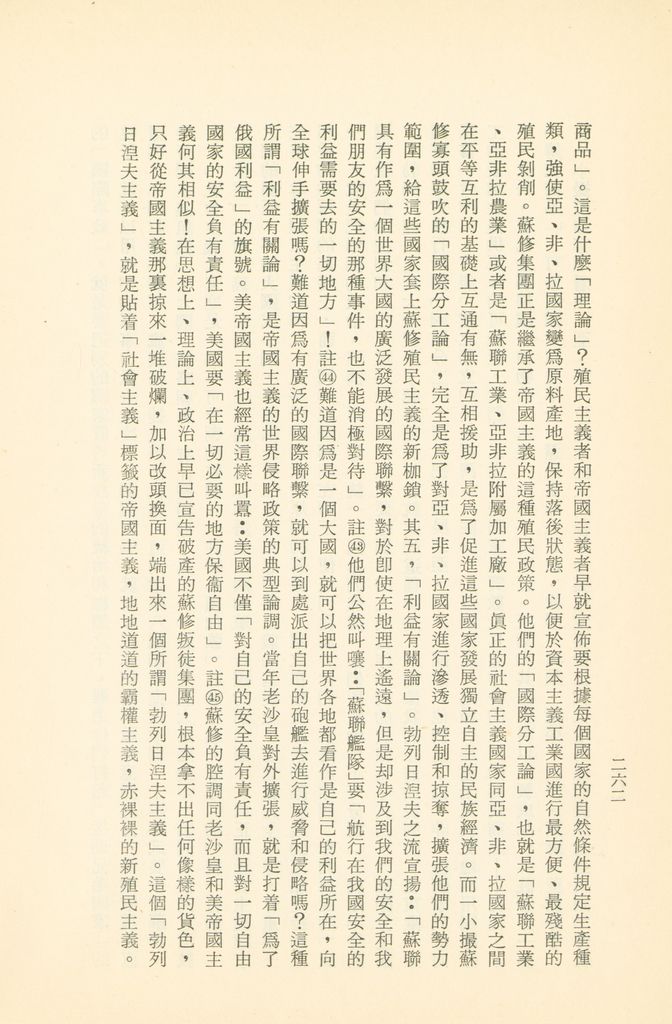 商品」。這是什麽「理論」？殖民主義者和帝國主義者早就宣佈要根據每個國家的自然條件規定生產種
類，強使亞、非、拉國家變爲原料產地，保持落後狀態，以便於資本主義工業國進行最方便、最殘酷的
殖民剝削。蘇修集團正是繼承了帝國主義的這種殖民政策。他們的「國際分工論」，也就是「蘇聯工業
、亞非拉農業」或者是「蘇聯工業、亞非拉附屬加工廠」。眞正的社會主義國家同亞、非、拉國家之間
在平等互利的基礎上互通有無，互相援助，是爲了促進這些國家發展獨立自主的民族經濟。而一小撮蘇
修寡頭鼓吹的「國際分工論」，完全是爲了對亞、非、拉國家進行滲透、控制和掠奪，擴張他們的勢力
範圍，給這些國家套上蘇修殖民主義的新枷鎖。其五，「利益有關論」。勃列日湼夫之流宣揚：「蘇聯
具有作爲一個世界大國的廣泛發展的國際聯繫，對於卽使在地理上遙遠，但是却涉及到我們的安全和我
們朋友的安全的那種事件，也不能消極對待」。註㊸他們公然叫嚷：「蘇聯艦隊」要「航行在我國安全的
利益需要去的一切地方」！註㊹難道因爲是一個大國，就可以把世界各地都看作是自己的利益所在，向
全球伸手擴張嗎？難道因爲有廣泛的國際聯繫，就可以到處派出自己的砲艦去進行威脅和侵略嗎？這種
所謂「利益有關論」，是帝國主義的世界侵略政策的典型論調。當年老沙皇對外擴張，就是打着「爲了
俄國利益」的旗號。美帝國主義也經常這樣叫囂：美國不僅「對自己的安全負有責任，而且對一切自由
國家的安全負有責任」，美國要「在一切必要的地方保衞自由」。註㊺蘇修的腔調同老沙皇和美帝國主
義何其相似！在思想上、理論上、政治上早已宣告破產的蘇修叛徒集團，根本拿不出任何像樣的貨色，
只好從帝國主義那裏掠來一堆破爛，加以改頭換面，端出來一個所謂「勃列日湼夫主義」。這個「勃列
日湼夫主義」，就是貼着「社會主義」標籤的帝國主義，地地道道的霸權主義，赤裸裸的新殖民主義。
二六二